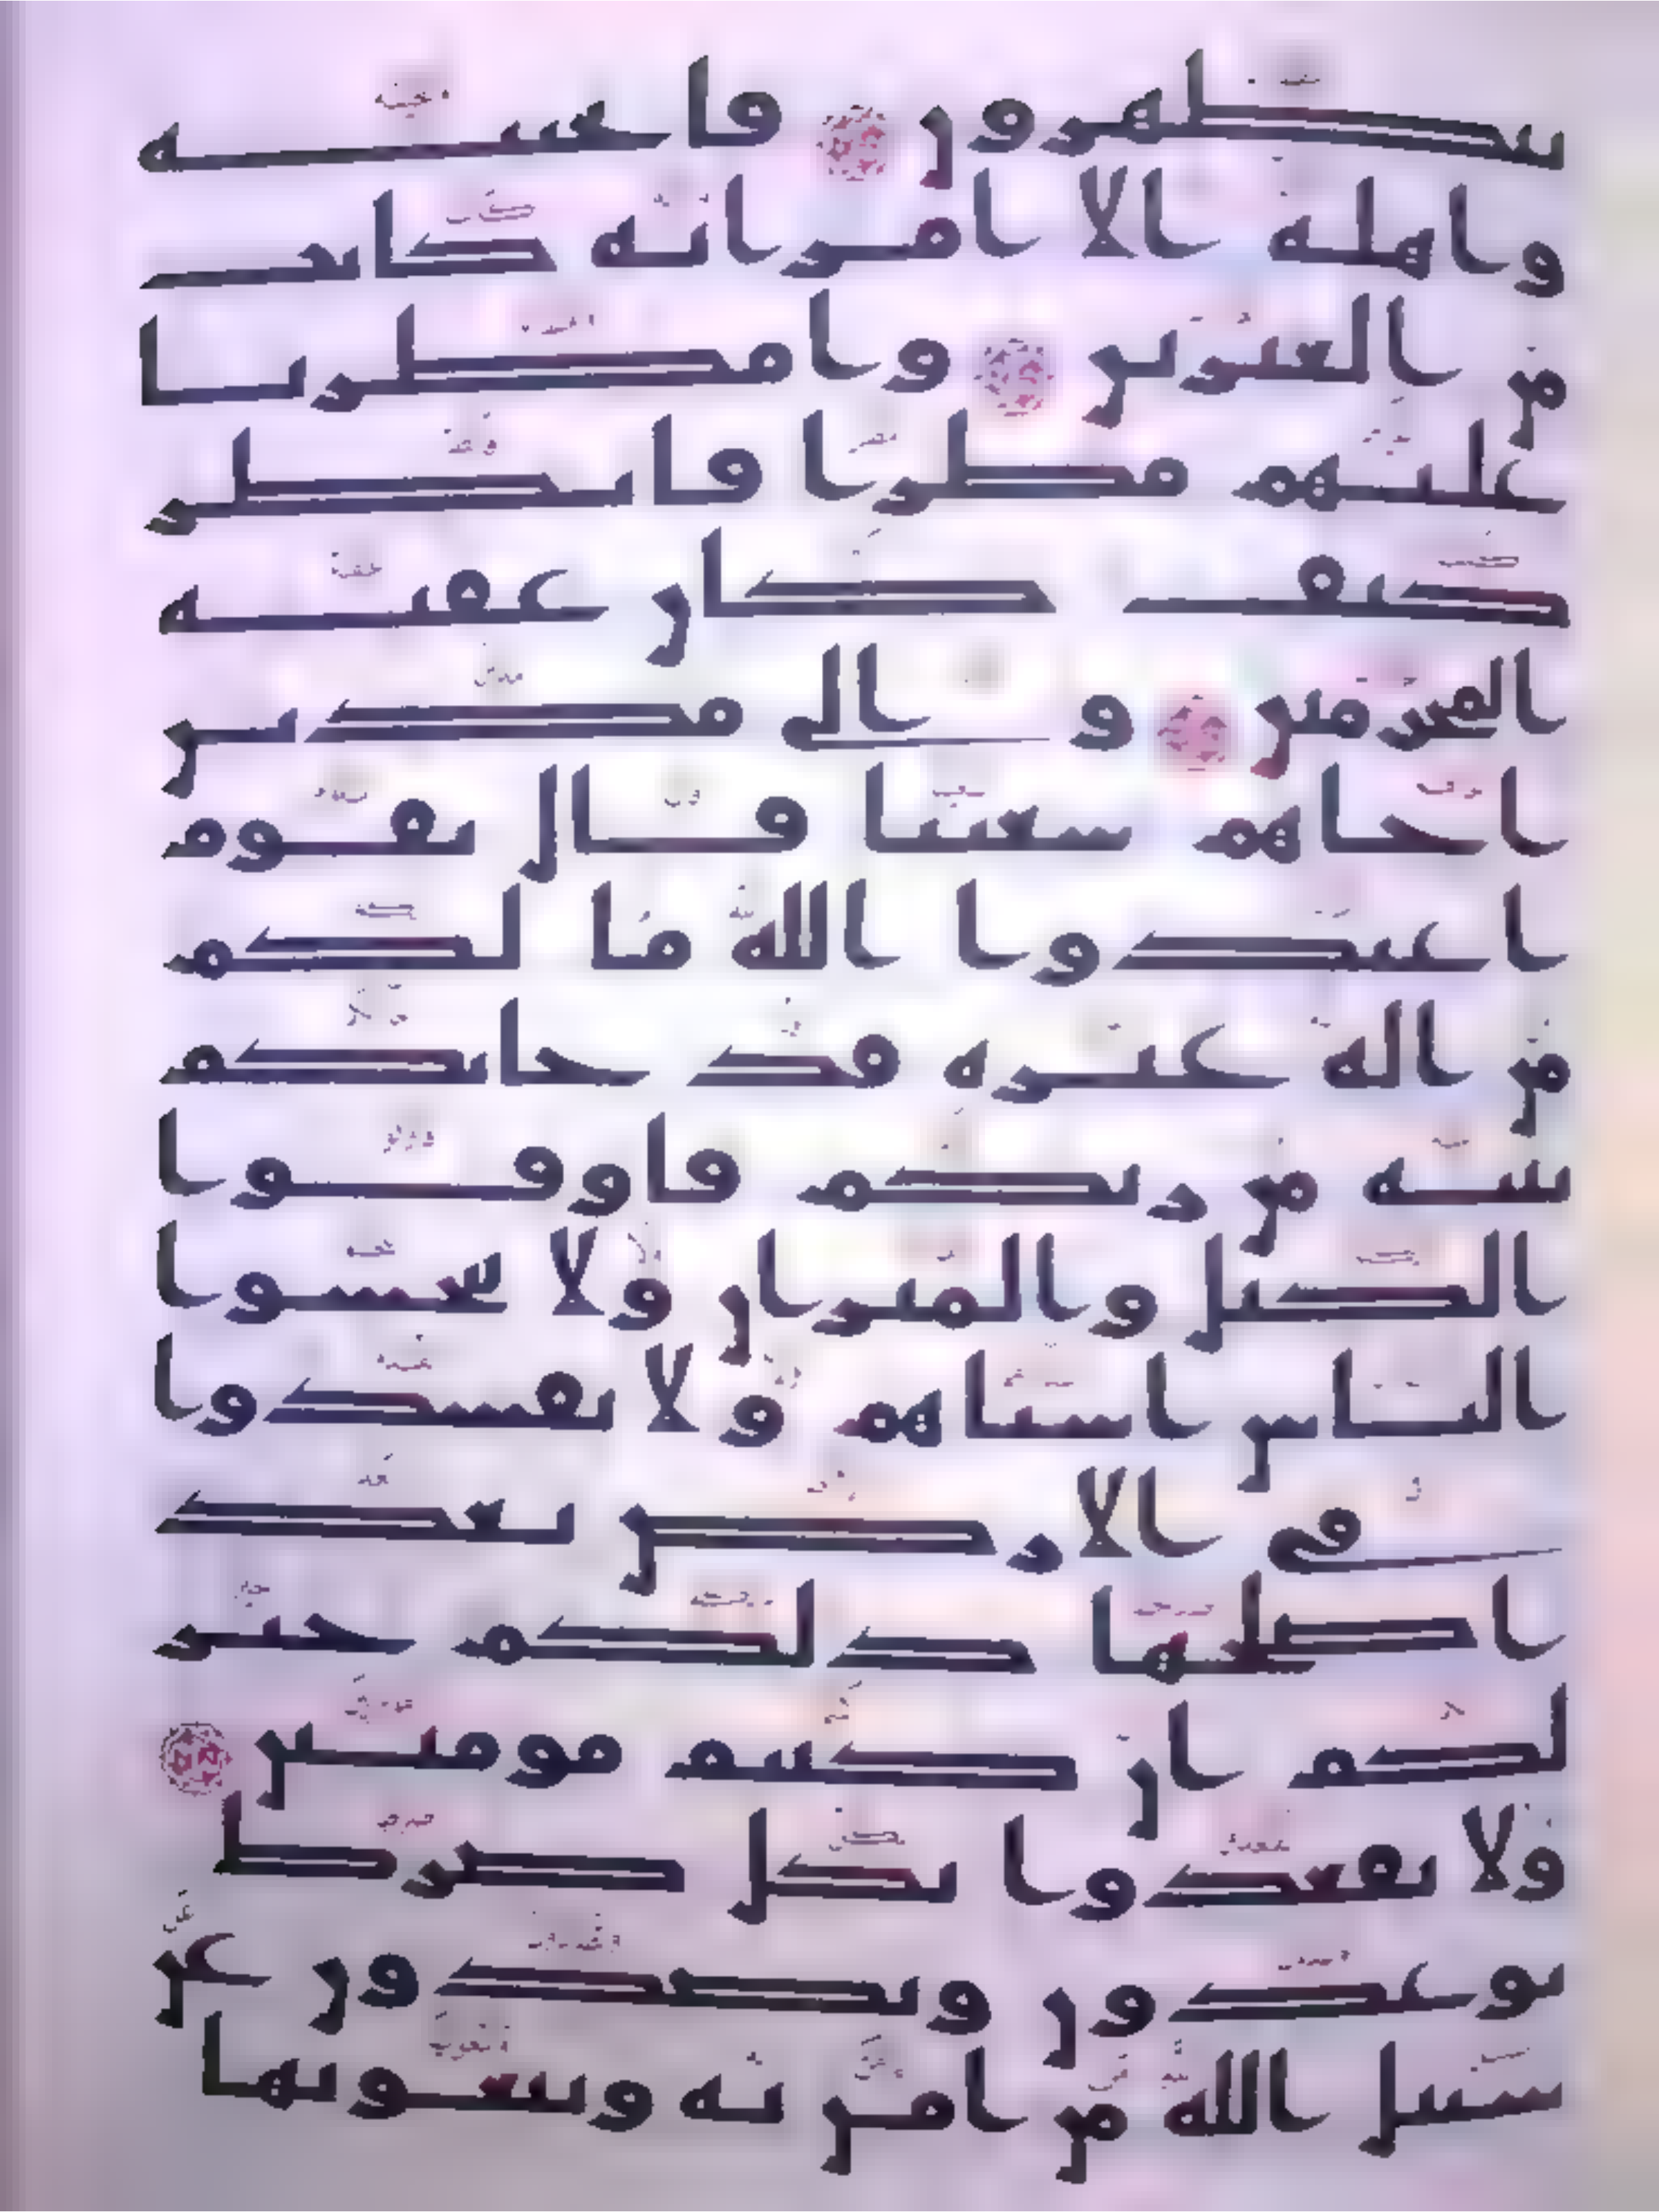 يتطهرون فانجينه
واهله الا امراته كانت
من الغبرين وامطرنا
عليهم مطرا فانظر
كيف كان عقبه
المجرمين والى مدين
اخاهم شعيبا قال يقوم
اعبدوا الله ما لكم
من اله غيره قد جاتكم
بينه من ربكم فاوفوا
الكيل والميزان ولا تبخسوا
الناس اشياهم ولا تفسدوا
فى الارض بعد
اصلحها ذلكم خير
لكم ان كنتم مومنين
ولا تقعدوا بكل صرط
توعدون وتصدون عن
سبيل الله من امن به وتبغونها